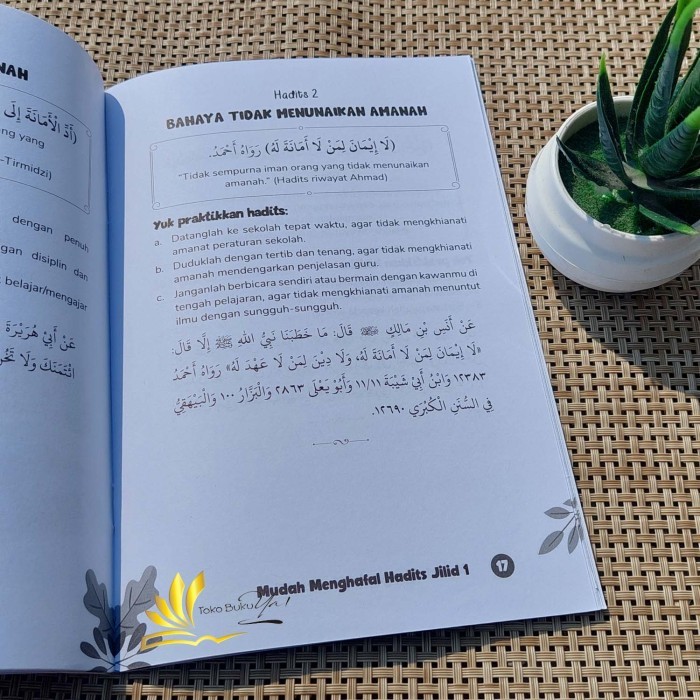 NAH
(أَدِّ الْأَمَانَةَ إِلَى
ng yang
-Tirmidzi)
dengan penuh
gan disiplin dan
belajar/mengajar
عَنْ أَبِيْ هُرَيْرَةَ
ائْتَمَنَكَ وَلَا تَخُ
Hadits 2
BAHAYA TIDAK MENUNAIKAN AMANAH
(لَا إِيْمَانَ لِمَنْ لَا أَمَانَةَ لَهُ) رَوَاهُ أَحْمَدُ.
"Tidak sempurna iman orang yang tidak menunaikan
amanah." (Hadits riwayat Ahmad)
Yuk praktikkan hadits:
a. Datanglah ke sekolah tepat waktu, agar tidak mengkhianati
amanat peraturan sekolah.
b. Duduklah dengan tertib dan tenang, agar tidak mengkhianati
amanah mendengarkan penjelasan guru.
c. Janganlah berbicara sendiri atau bermain dengan kawanmu di
tengah pelajaran, agar tidak mengkhianati amanah menuntut
ilmu dengan sungguh-sungguh.
عَنْ أَنَسِ بْنِ مَالِكٍ ﷺ قَالَ: مَا خَطَبَنَا نَبِيُّ اللهِ ﷺ إِلَّا قَالَ:
«لَا إِيْمَانَ لِمَنْ لَا أَمَانَةَ لَهُ، وَلَا دِيْنَ لِمَنْ لَا عَهْدَ لَهُ» رَوَاهُ أَحْمَدُ
١٢٣٨٣ وَابْنُ أَبِيْ شَيْبَةَ ١١/١١ وَأَبُوْ يَعْلَى ٢٨٦٣ وَالْبَزَّارُ ١٠٠ وَالْبَيْهَقِيُّ
فِي السُّنَنِ الْكُبْرَي ١٢٦٩٠.
Mudah Menghafal Hadits Jilid 1
17
Toko Buku